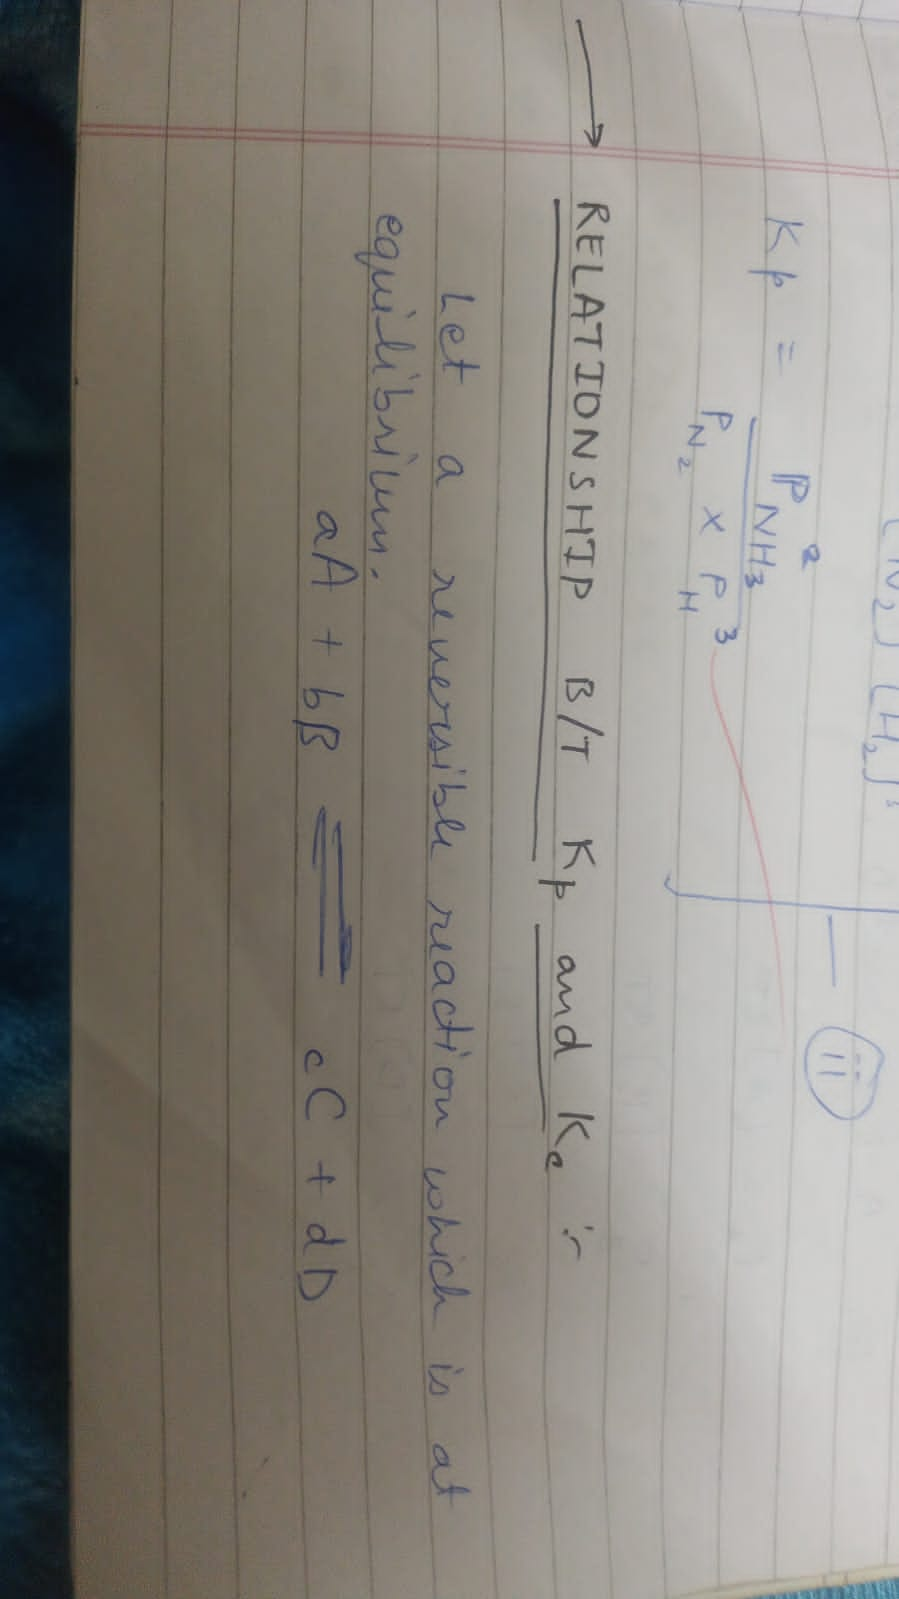 [N₂] [H₂]³
Kp = P²NH₃ / PN₂ × P³H — (ii)
→ RELATIONSHIP B/T Kp and Kc :-
Let a reversible reaction which is at
equilibrium.
aA + bB ⇌ cC + dD